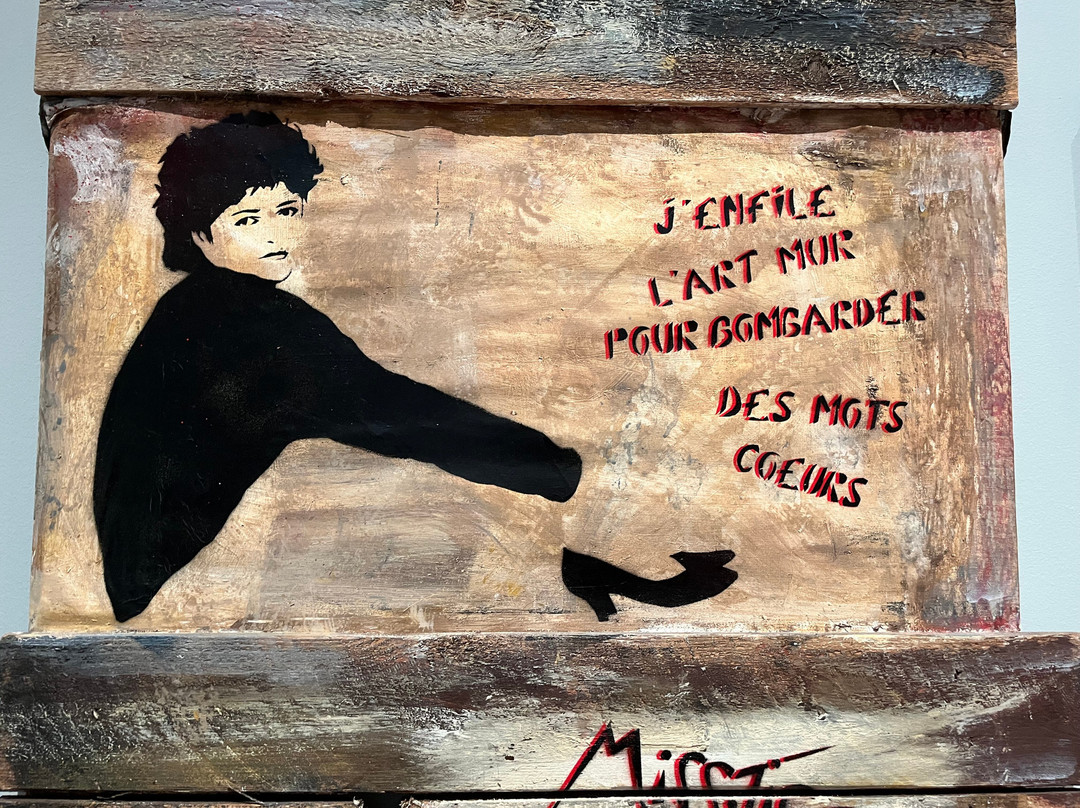 J'ENFiLE
L'ART MUR
POUR BOMBARDER
DES MOTS
COEURS